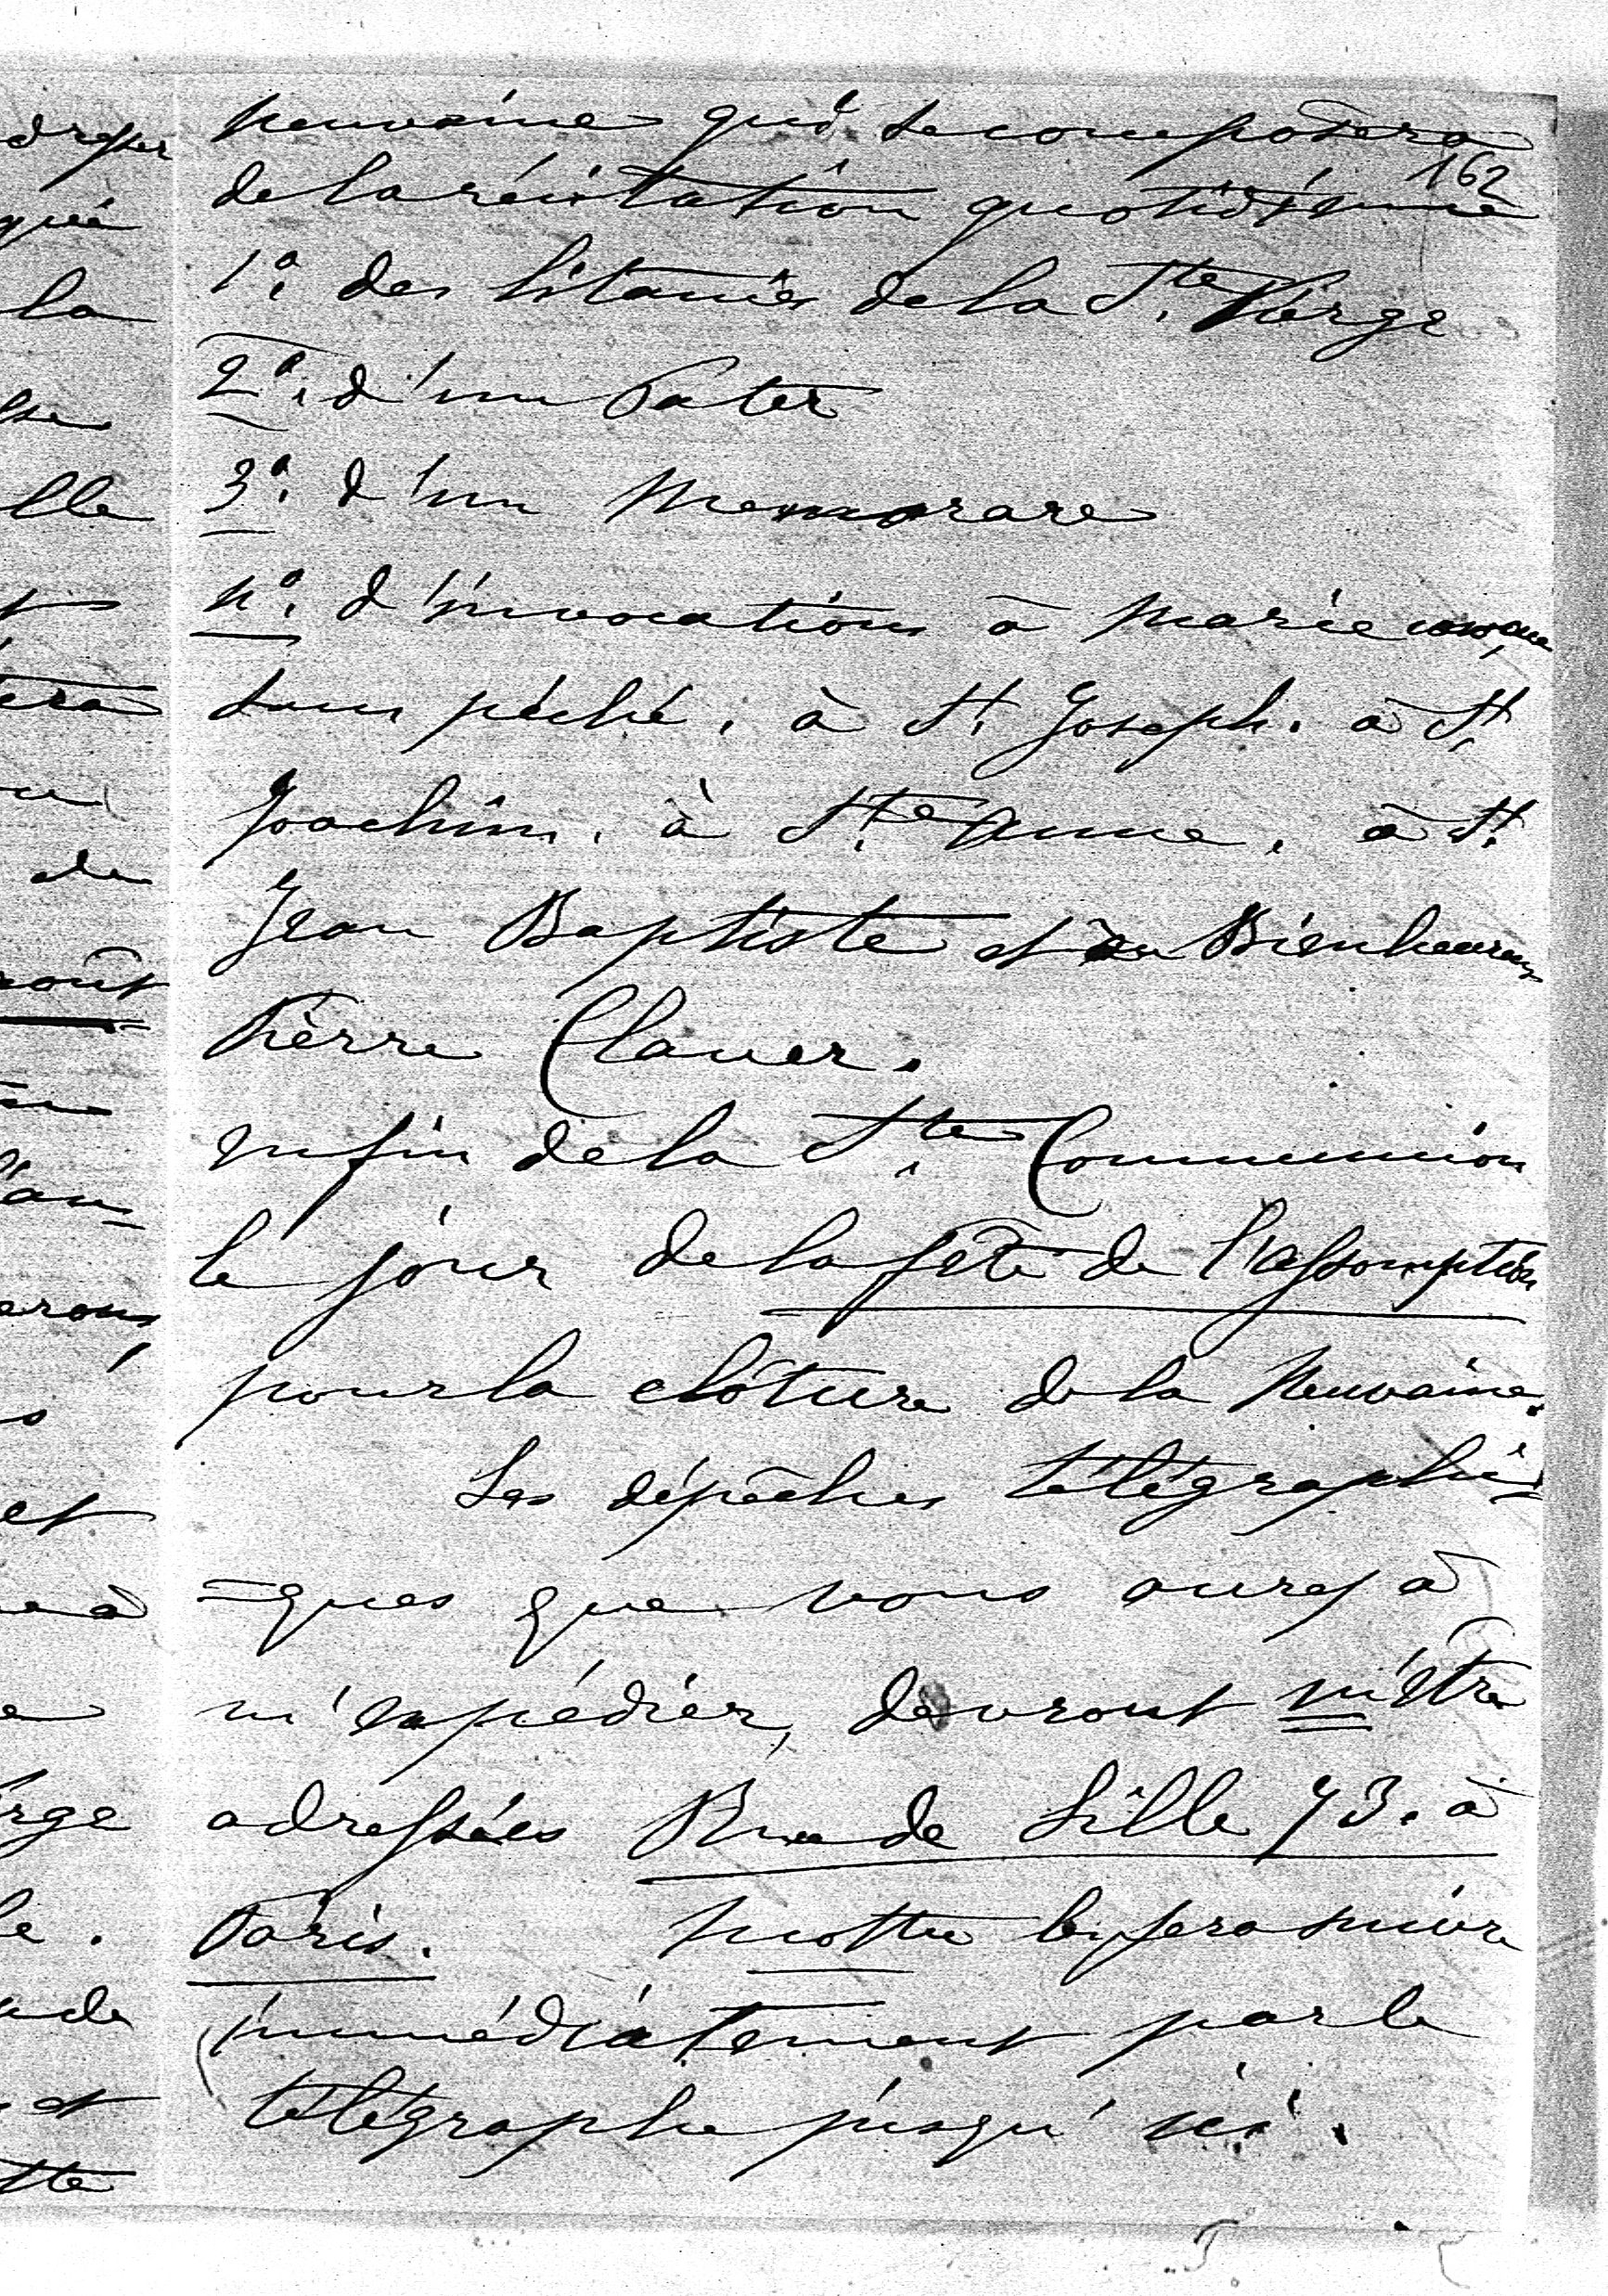 neuvaine qui se composera
162
de la récitation quotidienne
1º. des litanies de la Ste. Vierge
2º. d'un Pater
3º. d'un Memorare
4º. d'invocations à Marie conçue
sans péché, à St. Joseph. à St.
Joachim, à Ste. Anne, à St.
Jean Baptiste et au Bienheureux
Pierre Claver.
enfin de la Ste. Communion
le jour de la fête de l'assomption
pour la clôture de la Neuvaine.
Les dépêches télégraphi=
=ques que vous aurez à
m'expédier, devront m'être
adressées Rue de Lille 73. à
Paris. Mottu les fera suivre
immédiatement par le
télégraphe jusqu'ici.
la
lle
tera
de
et
rge
tte